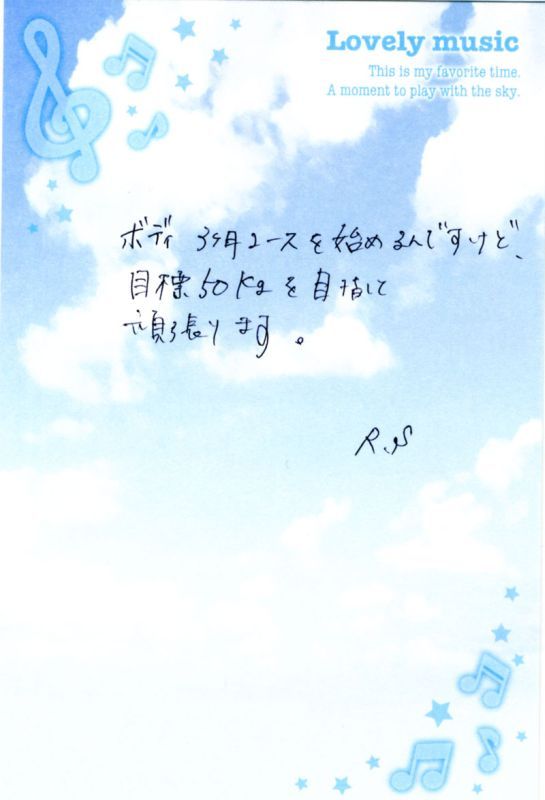 Lovely music
This is my favorite time.
A moment to play with the sky.
ボディ 3ヶ月コースを始めるんですけど、
目標50Kgを目指して
頑張ります。
R.S